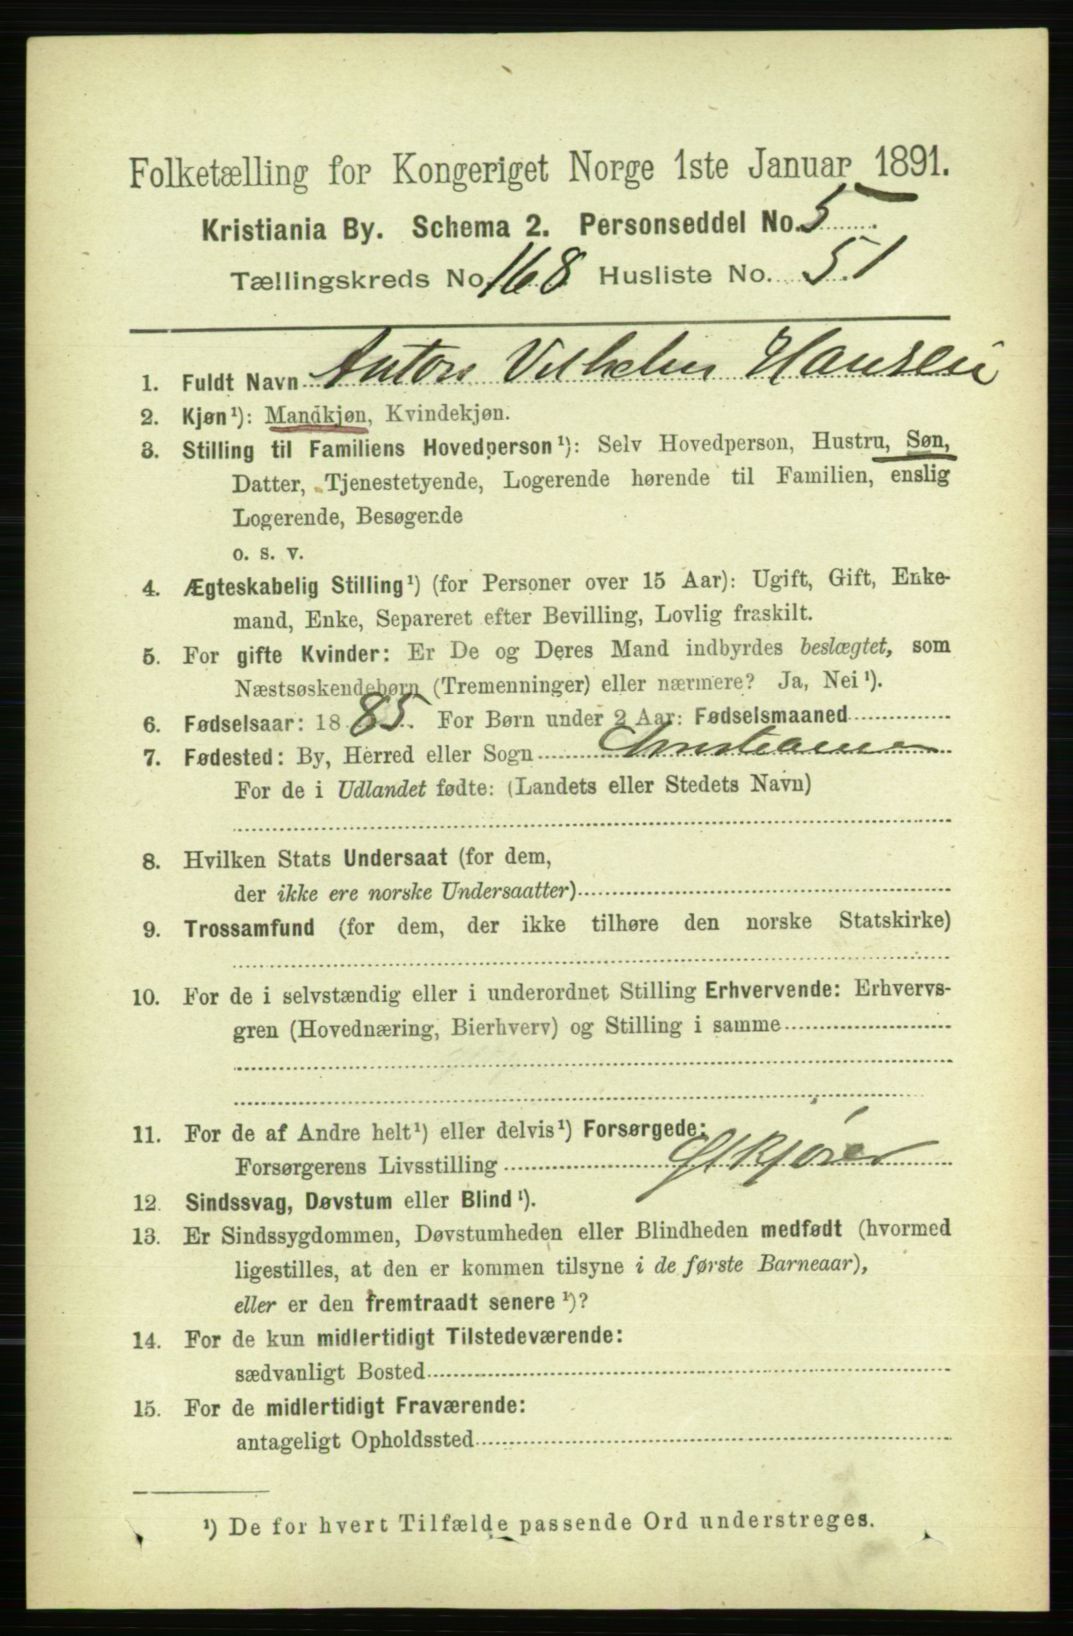 Folketælling for Kongeriget Norge 1ste Januar 1891.
Kristiania By. Schema 2. Personseddel No. 5
Tællingskreds No. 168 Husliste No. 51
1. Fuldt Navn Anton Vilhelm Hansen
2. Kjøn¹): Mandkjøn, Kvindekjøn.
3. Stilling til Familiens Hovedperson¹): Selv Hovedperson, Hustru, Søn,
Datter, Tjenestetyende, Logerende hørende til Familien, enslig
Logerende, Besøgende
o. s. v.
4. Ægteskabelig Stilling¹) (for Personer over 15 Aar): Ugift, Gift, Enke-
mand, Enke, Separeret efter Bevilling, Lovlig fraskilt.
5. For gifte Kvinder: Er De og Deres Mand indbyrdes beslægtet, som
Næstsøskendebørn (Tremenninger) eller nærmere? Ja, Nei¹).
6. Fødselsaar: 1885. For Børn under 2 Aar: Fødselsmaaned
7. Fødested: By, Herred eller Sogn Christiania
For de i Udlandet fødte: (Landets eller Stedets Navn)
8. Hvilken Stats Undersaat (for dem,
der ikke ere norske Undersaatter)
9. Trossamfund (for dem, der ikke tilhøre den norske Statskirke)
10. For de i selvstændig eller i underordnet Stilling Erhvervende: Erhvervs-
gren (Hovednæring, Bierhverv) og Stilling i samme
11. For de af Andre helt¹) eller delvis¹) Forsørgede:
Forsørgerens Livsstilling Ølkjører
12. Sindssvag, Døvstum eller Blind¹).
13. Er Sindssygdommen, Døvstumheden eller Blindheden medfødt (hvormed
ligestilles, at den er kommen tilsyne i de første Barneaar),
eller er den fremtraadt senere¹)?
14. For de kun midlertidigt Tilstedeværende:
sædvanligt Bosted
15. For de midlertidigt Fraværende:
antageligt Opholdssted
¹) De for hvert Tilfælde passende Ord understreges.